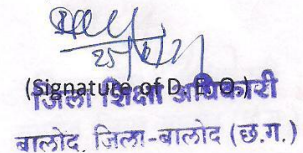 25/
(Signature of D. E. O.)
जिला शिक्षा अधिकारी
बालोद, जिला-बालोद (छ.ग.)